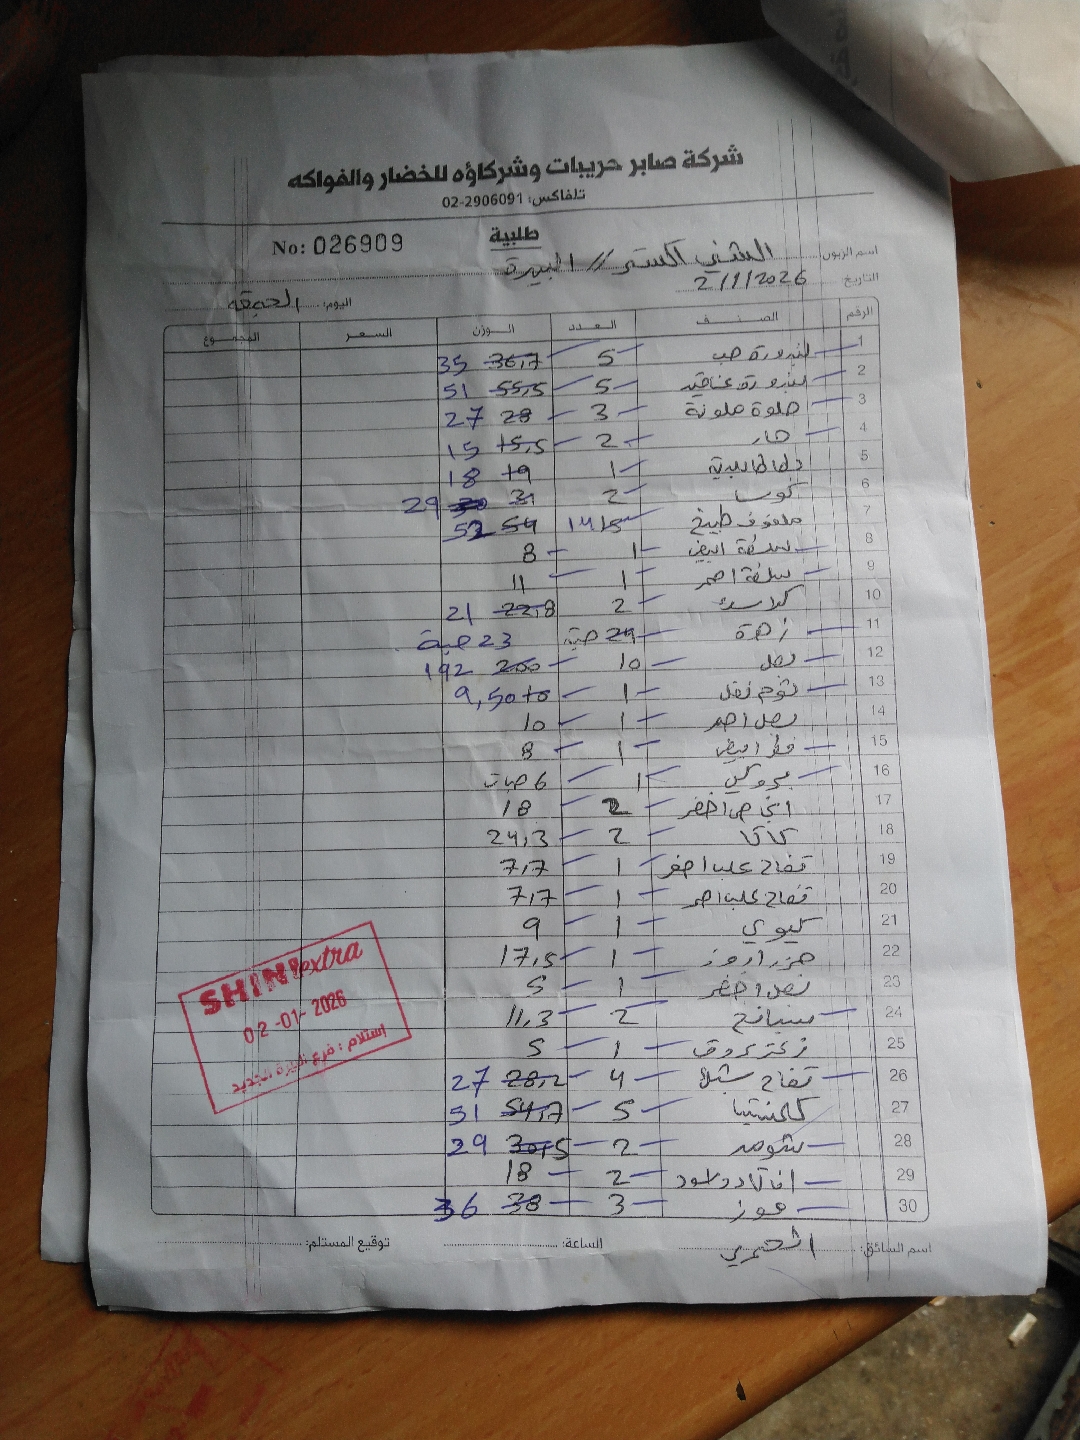 شركة صابر حريبات وشركاؤه للخضار والفواكه
تلفاكس: 02-2906091
طلبية
No: 026909
اسم الزبون: الشني اكسترا // البيرة
التاريخ: 2/1/2026
اليوم: الجمعة
الرقم الصنف العدد الوزن السعر المجموع
1 بندورة حب 5 36,7 35
2 بندورة عناقيد 5 55,5 51
3 حلوة ملونة 3 28 27
4 حار 2 15,5 15
5 بطاطا بلدية 1 19 18
6 كوسا 2 31 30 29
7 ملفوف طبيخ 54 52
8 ملفوف ابيض 1 8
9 ملفوف احمر 1 11
10 2 22,8 21
11 زهرة 24 حبة 23 حبة
12 بصل 10 200 192
13 ثوم نقل 1 10 9,50
14 بصل احمر 1 10
15 فطر ابيض 1 8
16 بروكلي 1 6 حبات
17 اجاص اخضر 2 18
18 كاكا 2 24,3
19 تفاح علب اصفر 1 7,7
20 تفاح علب احمر 1 7,7
21 كيوي 1 9
22 جزر اروز 1 17,5
23 بصل اخضر 1 5
24 سبانخ 2 11,3
25 زعتر عروق 1 5
26 تفاح 4 28,2 27
27 كلمنتينا 5 54,7 51
28 شومر 2 30,5 29
29 افوكادو اسود 2 18
30 موز 3 38 36
اسم السائق: العمري
الساعة:
توقيع المستلم:
SHINI extra
02-01-2026
إستلام : فرع البيرة الجديد